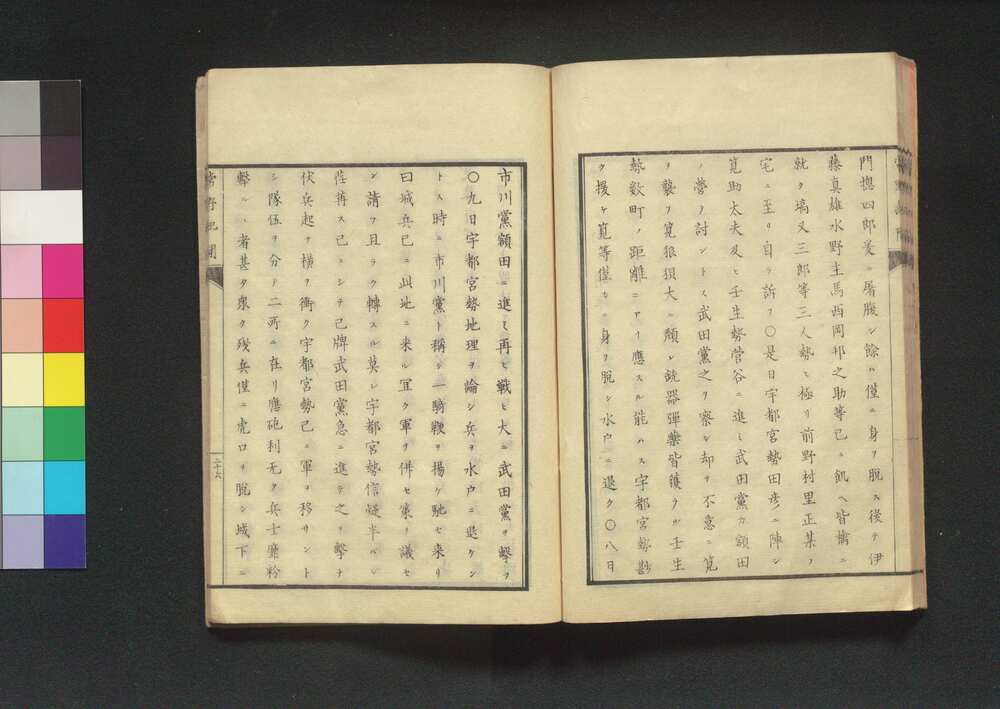 門摠四郎爰ニ屠腹シ餘ハ僅ニ身ヲ脱ス後チ伊
藤真雄水野主馬西岡邦之助等已ニ飢ヘ皆擒ニ
就タ塙又三郎等三人勢ヒ極リ前野村里正某ノ
宅ニ至リ自ラ訴フ〇是日宇都宮勢田彦ニ陣シ
筧助太夫及ヒ壬生勢菅谷ニ進ミ武田黨カ額田
ノ營ヲ討ントス武田黨之ヲ察シ却テ不意ニ筧
ヲ襲フ筧狼狽大ニ頽レ銃器彈藥皆獲ラル壬生
勢数町ノ距離ニアリ應スル能ハス宇都宮勢尠
ク援ケ筧等僅ニ身ヲ脱シ水戸ニ退ク〇八日
市川黨額田ニ進ミ再ヒ戦ヒ大ニ武田黨ヲ撃ツ
〇九日宇都宮勢地理ヲ論シ兵ヲ水戸ニ退ケン
トス時ニ市川黨ト稱シ一騎鞭ヲ揚ケ馳セ来リ
曰城兵已ニ此地ニ来ル宜ク軍ヲ併セ策ヲ議セ
ン請フ且ラク轉スル莫レ宇都宮勢信疑半ハシ
荏苒ス已ニシテ已牌武田黨急ニ進テ之ヲ撃チ
伏兵起テ横ヲ衝ク宇都宮勢已ニ軍ヲ移サント
シ隊伍ヲ分テ二所ニ在リ應砲利无ク兵士靡粉
撃ルヽ者甚タ衆ク残兵僅ニ虎口ヲ脱シ城下ニ
常野紀聞
二十六